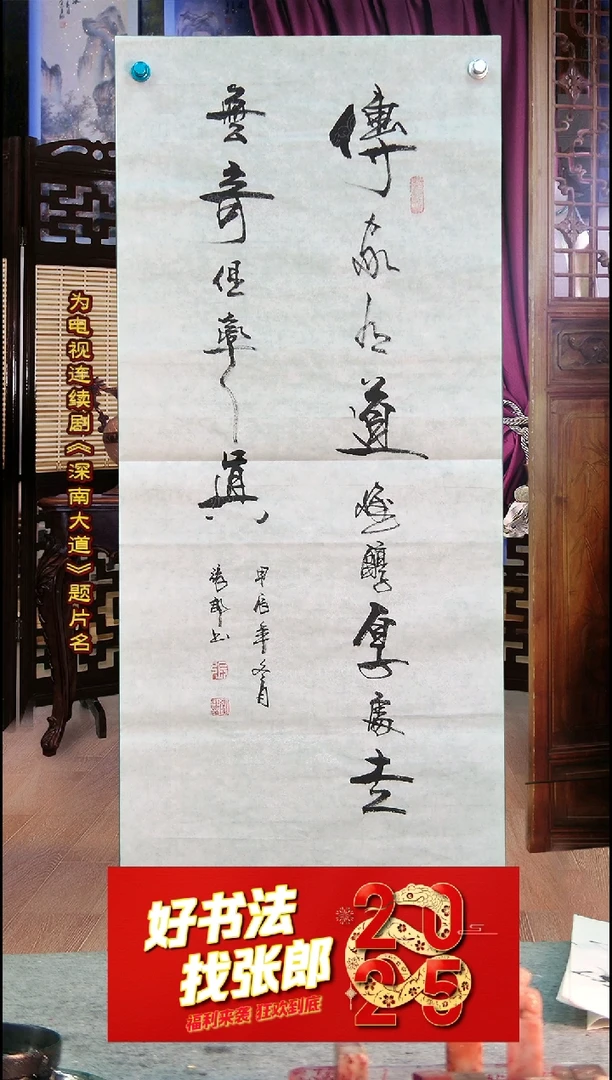 傳家有道惟醇厚處世
無奇但率真
甲辰年冬月
張郎书
为电视连续剧《深南大道》题片名
好书法
找张郎
福利来袭 狂欢到底
2025